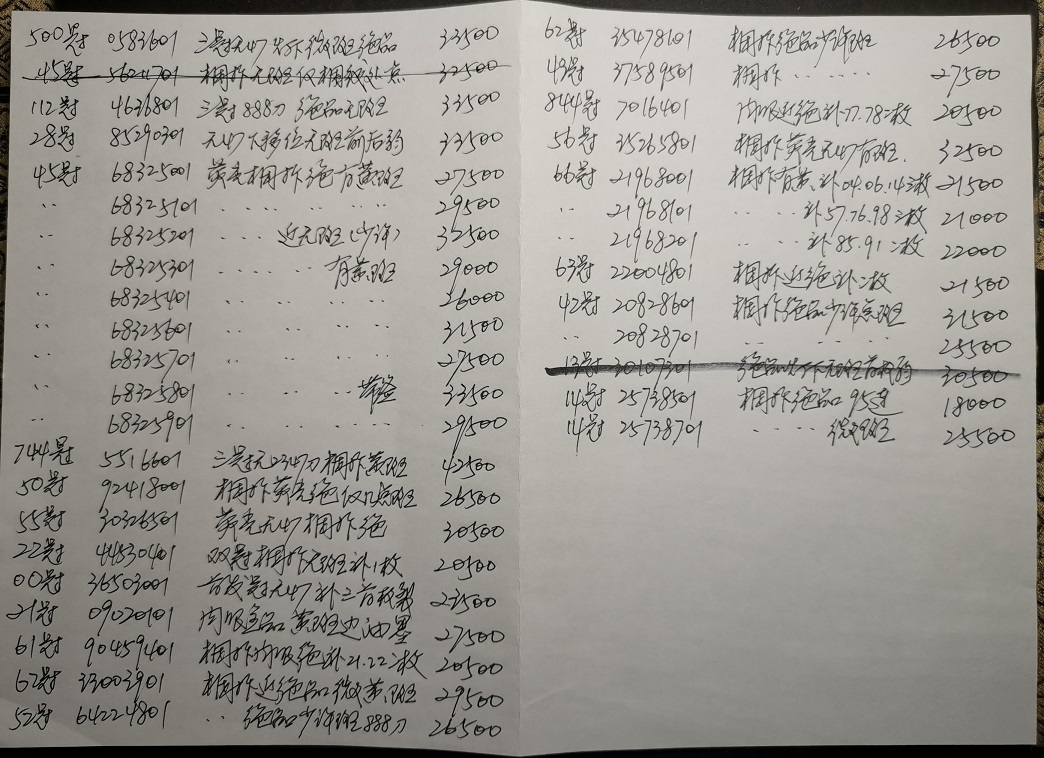 500冠 0583601 三冠无47 尖拆微斑绝品 33500
45冠 5624701 相拆无斑仅相纸处点 32500
112冠 4636801 三冠888刀 绝品无斑 33500
28冠 85290301 无47 下移位无斑前后韵 33500
45冠 68325001 荧亮相拆绝有黄斑 27500
‥ 68325101 ‥ ‥ ‥ 29500
‥ 68325201 ‥ ‥ 近无斑(少许) 32500
‥ 68325301 ‥ ‥ ‥ 有黄斑 29000
‥ 68325401 ‥ ‥ ‥ ‥ 26000
‥ 68325601 ‥ ‥ ‥ ‥ 31500
‥ 68325701 ‥ ‥ ‥ ‥ 27500
‥ 68325801 ‥ ‥ ‥ 33500
‥ 68325901 ‥ ‥ ‥ ‥ 29500
744冠 5516601 三冠无2347刀相拆黄斑 42500
50冠 92418001 相拆荧亮绝仅几点斑 26500
55冠 30326501 荧亮无47相拆绝 30500
22冠 44530401 双冠相拆无斑补1枚 20500
00冠 36503001 首发冠无47补三 23500
21冠 09020101 肉眼色品 黄斑边油墨 27500
61冠 90459401 相拆肉眼绝补21.22二枚 20500
62冠 33003901 相拆近绝品微黄斑 29500
52冠 64224801 ‥ 绝品少许斑888刀 26500
62冠 35478101 相拆绝品少许斑 26500
43冠 37589501 相拆 ‥ ‥ ‥ 27500
844冠 7016401 肉眼近绝补77.78二枚 20500
56冠 35265801 相拆荧亮无47有斑. 32500
66冠 21968001 相拆有黄.补04.06.14三枚 21500
‥ 21968101 ‥ ‥ 补57.76.98三枚 21000
‥ 21968201 ‥ ‥ 补85.91二枚 22000
63冠 22004801 相拆近绝补二枚 21500
42冠 20828601 相拆绝品少许点斑 31500
‥ 20828701 ‥ ‥ ‥ ‥ 25500
13冠 30107301 绝品 无斑 30500
14冠 25738501 相拆绝品95连 18000
14冠 25738701 ‥ ‥ ‥ 微斑 25500